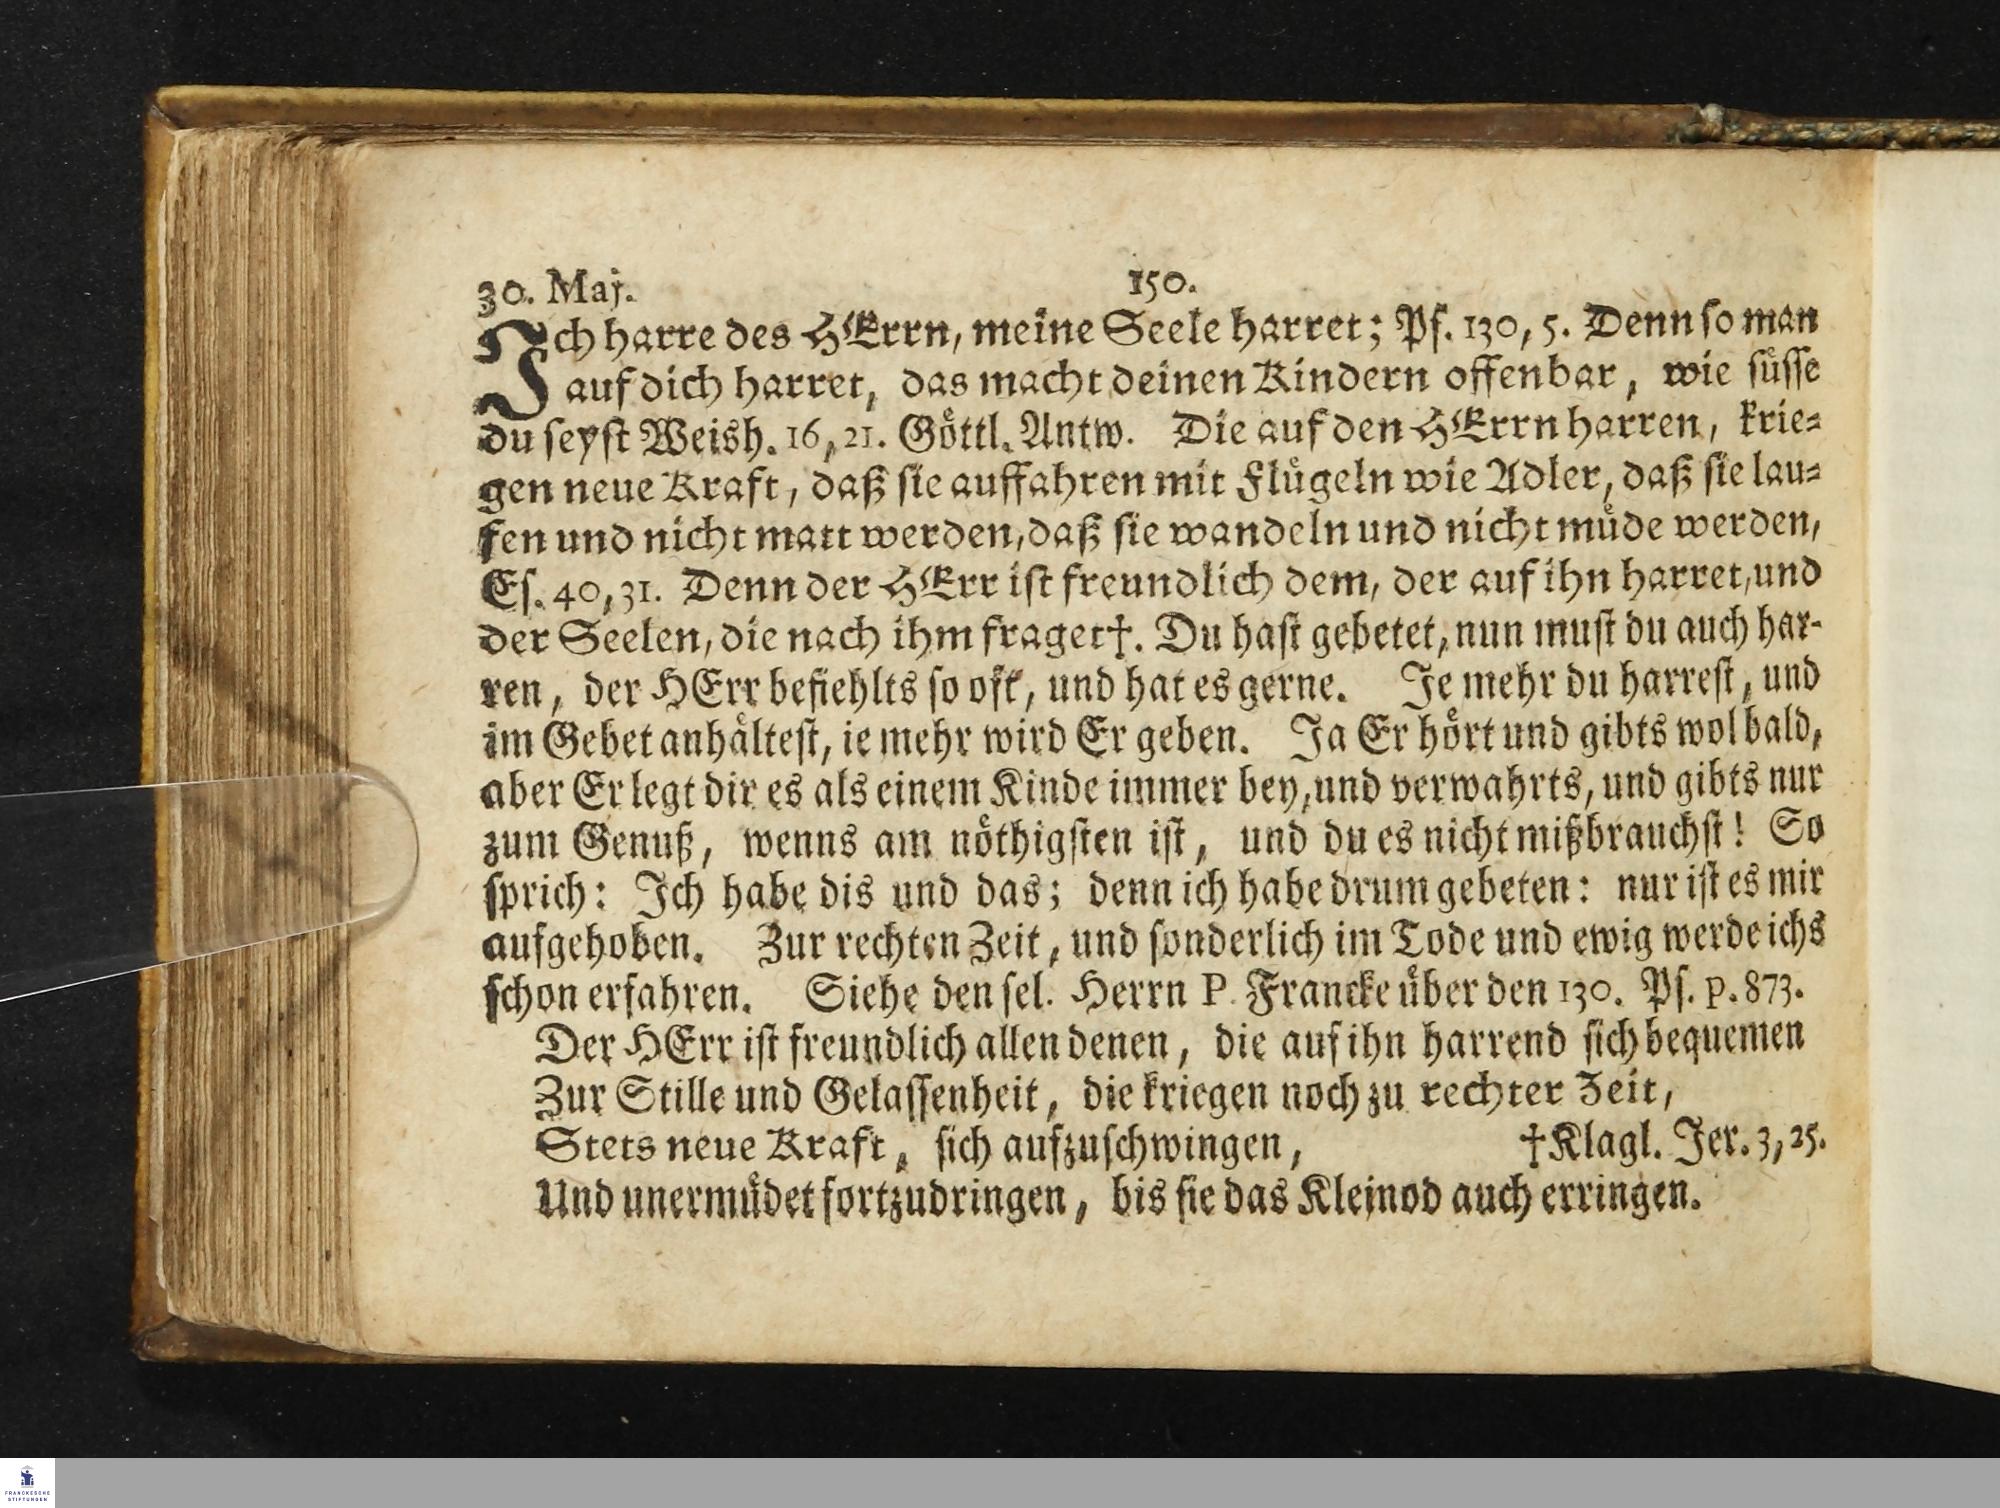 30. Maj. 150.
Ich harre des HErrn, meine Seele harret; Ps. 130, 5. Denn so man
auf dich harret, das macht deinen Kindern offenbar, wie süsse
du seyst Weish. 16, 21. Göttl. Antw. Die auf den HErrn harren, krie-
gen neue Kraft, daß sie auffahren mit Flügeln wie Adler, daß sie lau-
fen und nicht matt werden, daß sie wandeln und nicht müde werden,
Es. 40, 31. Denn der HErr ist freundlich dem, der auf ihn harret, und
der Seelen, die nach ihm fraget†. Du hast gebetet, nun must du auch har-
ren, der HErr befiehlts so oft, und hat es gerne. Je mehr du harrest, und
im Gebet anhältest, ie mehr wird Er geben. Ja Er hört und gibts wol bald,
aber Er legt dir es als einem Kinde immer bey, und verwahrts, und gibts nur
zum Genuß, wenns am nöthigsten ist, und du es nicht mißbrauchst! So
sprich: Ich habe dis und das; denn ich habe drum gebeten: nur ist es mir
aufgehoben. Zur rechten Zeit, und sonderlich im Tode und ewig werde ichs
schon erfahren. Siehe den sel. Herrn P. Francke über den 130. Ps. p. 873.
Der HErr ist freundlich allen denen, die auf ihn harrend sich bequemen
Zur Stille und Gelassenheit, die kriegen noch zu rechter Zeit,
Stets neue Kraft, sich aufzuschwingen, †Klagl. Jer. 3, 25.
Und unermüdet fortzudringen, bis sie das Kleinod auch erringen.
FRANCKESCHE
STIFTUNGEN